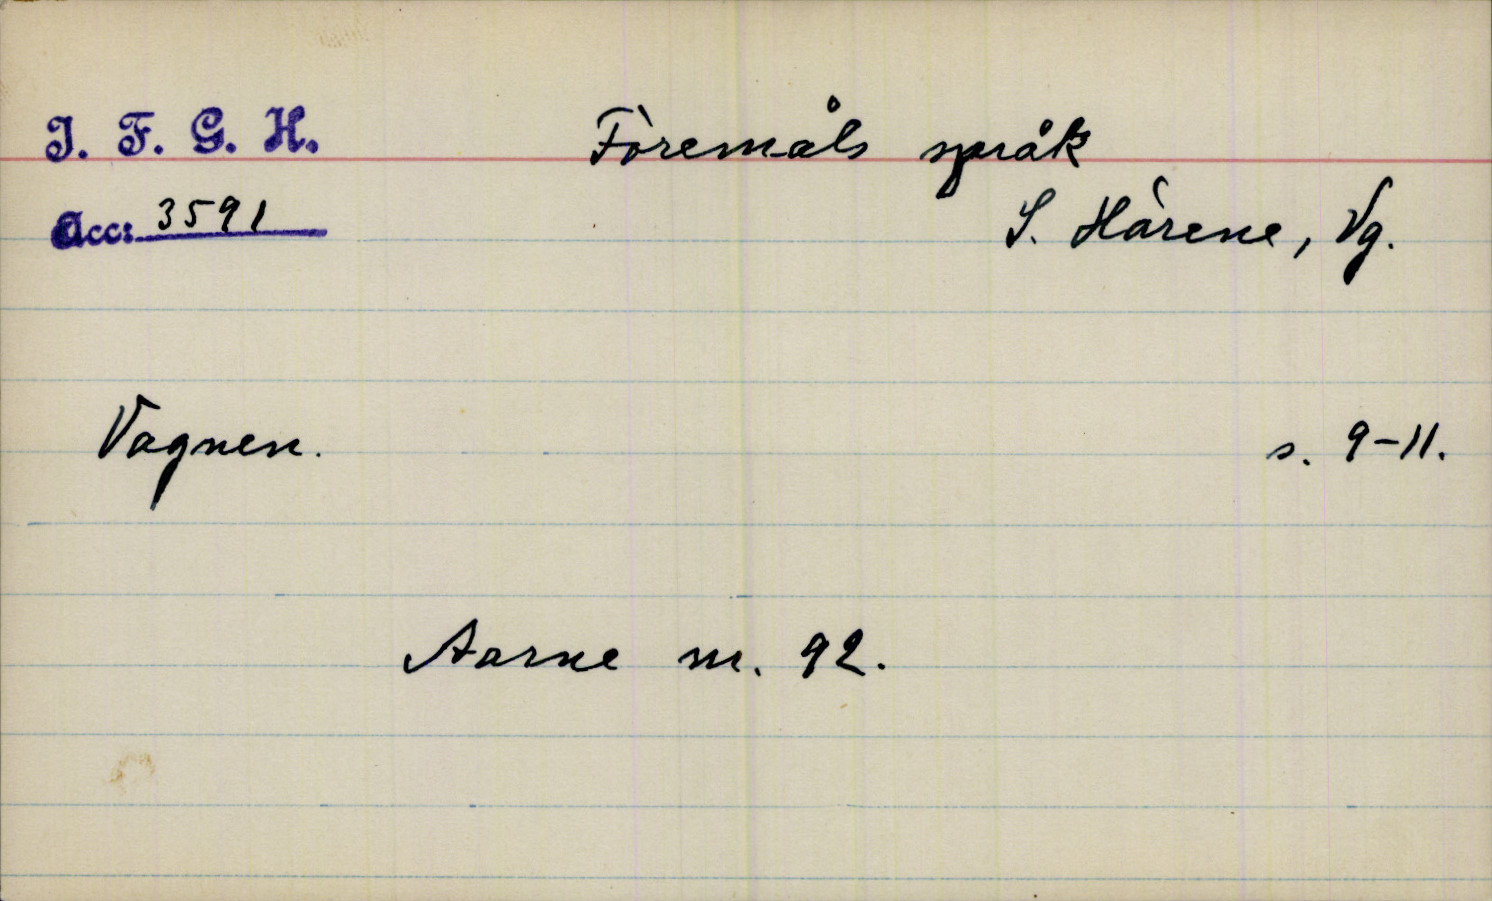 I. F. G. H.
Föremåls språk
Acc: 3591
S. Härene, Vg.
Vagnen.
s. 9-11.
Aarne nr. 92.